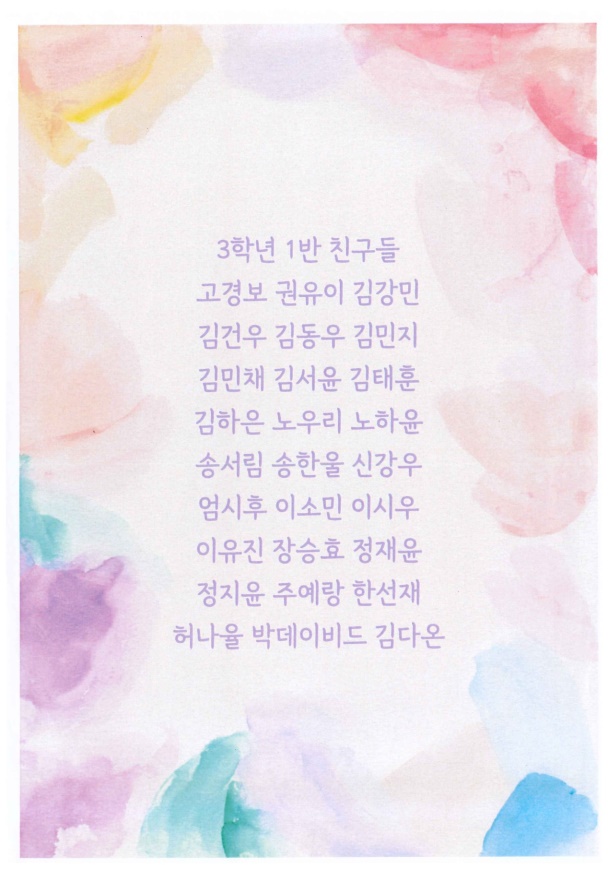 3학년 1반 친구들
고경보 권유이 김강민
김건우 김동우 김민지
김민채 김서윤 김태훈
김하은 노우리 노하윤
송서림 송한울 신강우
엄시후 이소민 이시우
이유진 장승효 정재윤
정지윤 주예랑 한선재
허나율 박데이비드 김다온